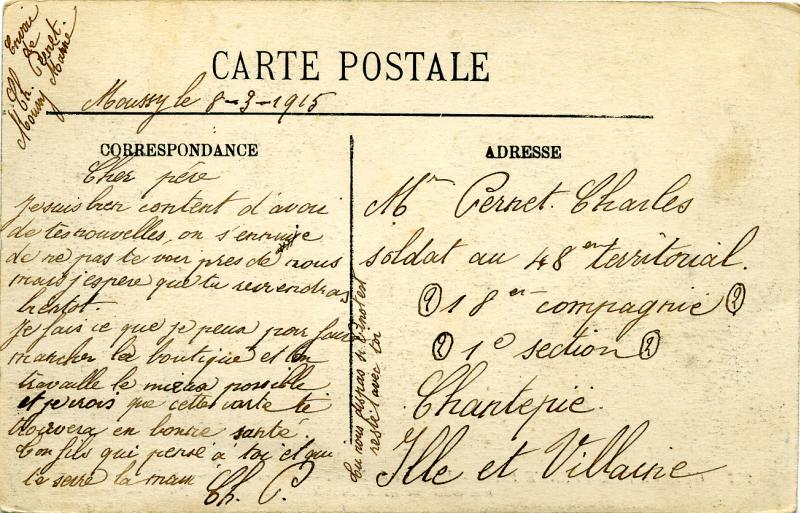 Envoi
de
Ch. Pernet
Moussy Marne
CARTE POSTALE
Moussy le 8-3-1915
CORRESPONDANCE
Cher père
Je suis bien content d'avoir
de tes nouvelles, on s'ennuie
de ne pas te voir pres de nous
mais j'espere que tu reviendras
bientot.
Je fais ce que je peux pour faire
marcher la boutique et on
travaille le mieux possible
et je crois que cette carte te
trouvera en bonne santé.
Ton fils qui pense à toi et qui
te serre la main
Ch. P.
Tu nous diras si Vinot est
resté avec toi
ADRESSE
Mr Pernet Charles
soldat au 48em territorial.
18em compagnie
1e section
Chantepie
Ille et Villaine